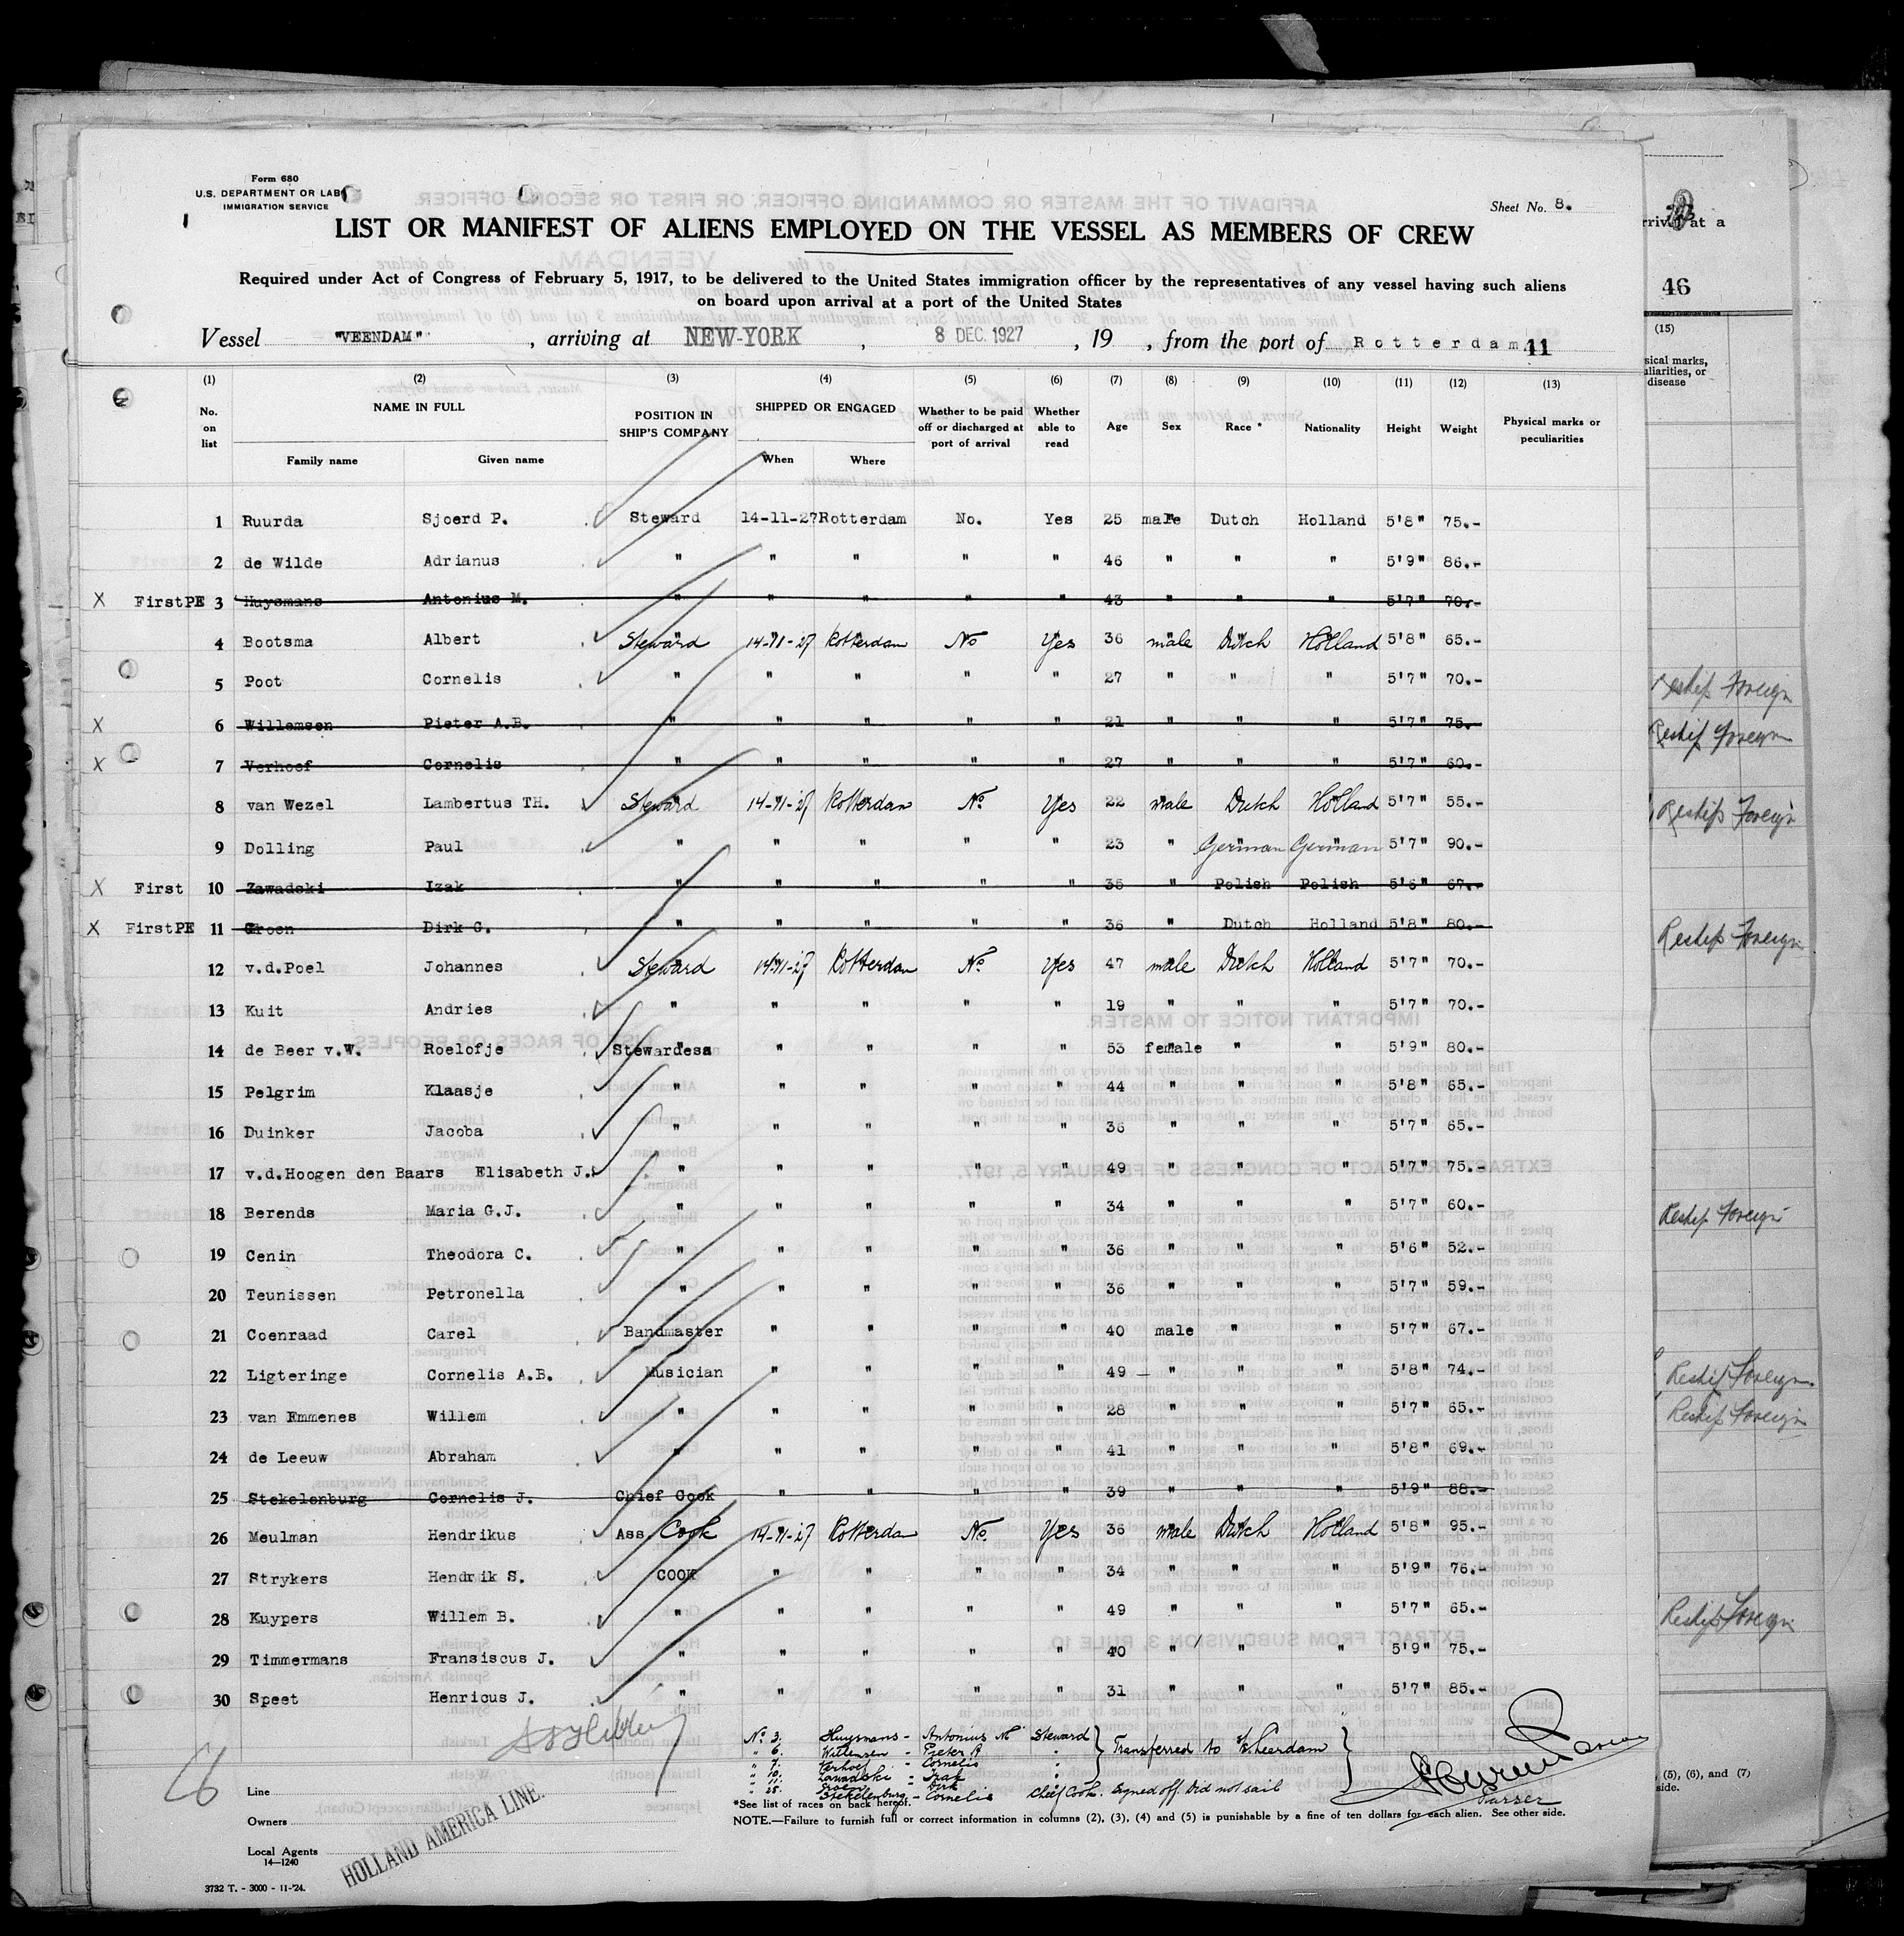 Form 680
U.S. DEPARTMENT OR LAB
IMMIGRATION SERVICE
Sheet No. 8.
LIST OR MANIFEST OF ALIENS EMPLOYED ON THE VESSEL AS MEMBERS OF CREW
Required under Act of Congress of February 5, 1917, to be delivered to the United States immigration officer by the representatives of any vessel having such aliens
on board upon arrival at a port of the United States
Vessel "VEENDAM" , arriving at NEW-YORK , 8 DEC. 1927 , 19 , from the port of Rotterdam 11
(1) (2) (3) (4) (5) (6) (7) (8) (9) (10) (11) (12) (13)
No. on list NAME IN FULL Family name Given name POSITION IN SHIP'S COMPANY SHIPPED OR ENGAGED When Where Whether to be paid off or discharged at port of arrival Whether able to read Age Sex Race * Nationality Height Weight Physical marks or peculiarities
1 Ruurda Sjoerd P. Steward 14-11-27 Rotterdam No. Yes 25 male Dutch Holland 5'8" 75.-
2 de Wilde Adrianus " " " " " 46 " " " 5'9" 86.-
X First PE 3 Huysmans Antonius M. " " " " " 43 " " " 5'7" 70.-
4 Bootsma Albert Steward 14-11-27 Rotterdam No Yes 36 male Dutch Holland 5'8" 65.-
5 Poot Cornelis " " " " " 27 " " " 5'7" 70.-
X 6 Willemsen Pieter A.B. " " " " " 21 " " " 5'7" 75.-
X 7 Verhoef Cornelis " " " " " 27 " " " 5'7" 60.-
8 van Wezel Lambertus TH. Steward 14-11-27 Rotterdam No Yes 22 male Dutch Holland 5'7" 55.-
9 Dolling Paul " " " " " 23 " German German 5'7" 90.-
X First 10 Zawadski Izak " " " " " 35 " Polish Polish 5'6" 67.-
X First PE 11 Groen Dirk C. " " " " " 36 " Dutch Holland 5'8" 80.-
12 v.d.Poel Johannes Steward 14-11-27 Rotterdam No Yes 47 male Dutch Holland 5'7" 70.-
13 Kuit Andries " " " " " 19 " " " 5'7" 70.-
14 de Beer v.W. Roelofje Stewardess " " " " 53 female " " 5'9" 80.-
15 Pelgrim Klaasje " " " " " 44 " " " 5'8" 65.-
16 Duinker Jacoba " " " " " 36 " " " 5'7" 65.-
17 v.d.Hoogen den Baars Elisabeth J. " " " " " 49 " " " 5'7" 75.-
18 Berends Maria G.J. " " " " " 34 " " " 5'7" 60.-
19 Cenin Theodora C. " " " " " 36 " " " 5'6" 52.-
20 Teunissen Petronella " " " " " 36 " " " 5'7" 59.-
21 Coenraad Carel Bandmaster " " " " 40 male " " 5'7" 67.-
22 Ligteringe Cornelis A.B. Musician " " " " 49 " " " 5'8" 74.-
23 van Emmenes Willem " " " " " 28 " " " 5'7" 65.-
24 de Leeuw Abraham " " " " " 41 " " " 5'8" 69.-
25 Stekelenburg Cornelis J. Chief Cook " " " " 39 " " " 5'9" 88.-
26 Meulman Hendrikus Ass. Cook 14-11-27 Rotterdam No. Yes 36 male Dutch Holland 5'8" 95.-
27 Strykers Hendrik S. COOK " " " " 34 " " " 5'9" 76.-
28 Kuypers Willem B. " " " " " 49 " " " 5'7" 65.-
29 Timmermans Fransiscus J. " " " " " 40 " " " 5'9" 75.-
30 Speet Henricus J. " " " " " 31 " " " 5'7" 85.-
No. 3. Huysmans - Antonius M Steward
" 6. Willemsen - Pieter A "
" 7. Verhoef - Cornelis "
" 10. Zawadski - Izak "
" 11. Groen - Dirk "
Transferred to
" 25. Stekelenburg - Cornelis Chief Cook. Signed off. Did not sail
Purser
26
*See list of races on back hereof.
NOTE.—Failure to furnish full or correct information in columns (2), (3), (4) and (5) is punishable by a fine of ten dollars for each alien. See other side.
Line
Owners
Local Agents
HOLLAND AMERICA LINE.
14—1240
3732 T. - 3000 - 11-'24.
rrival at a
46
(15)
sical marks,
uliarities, or
disease
Reship Foreign
Reship Foreign
Reship Foreign
Reship Foreign
Reship Foreign
Reship Foreign
Reship Foreign
Reship Foreign
, (5), (6), and (7)
side.